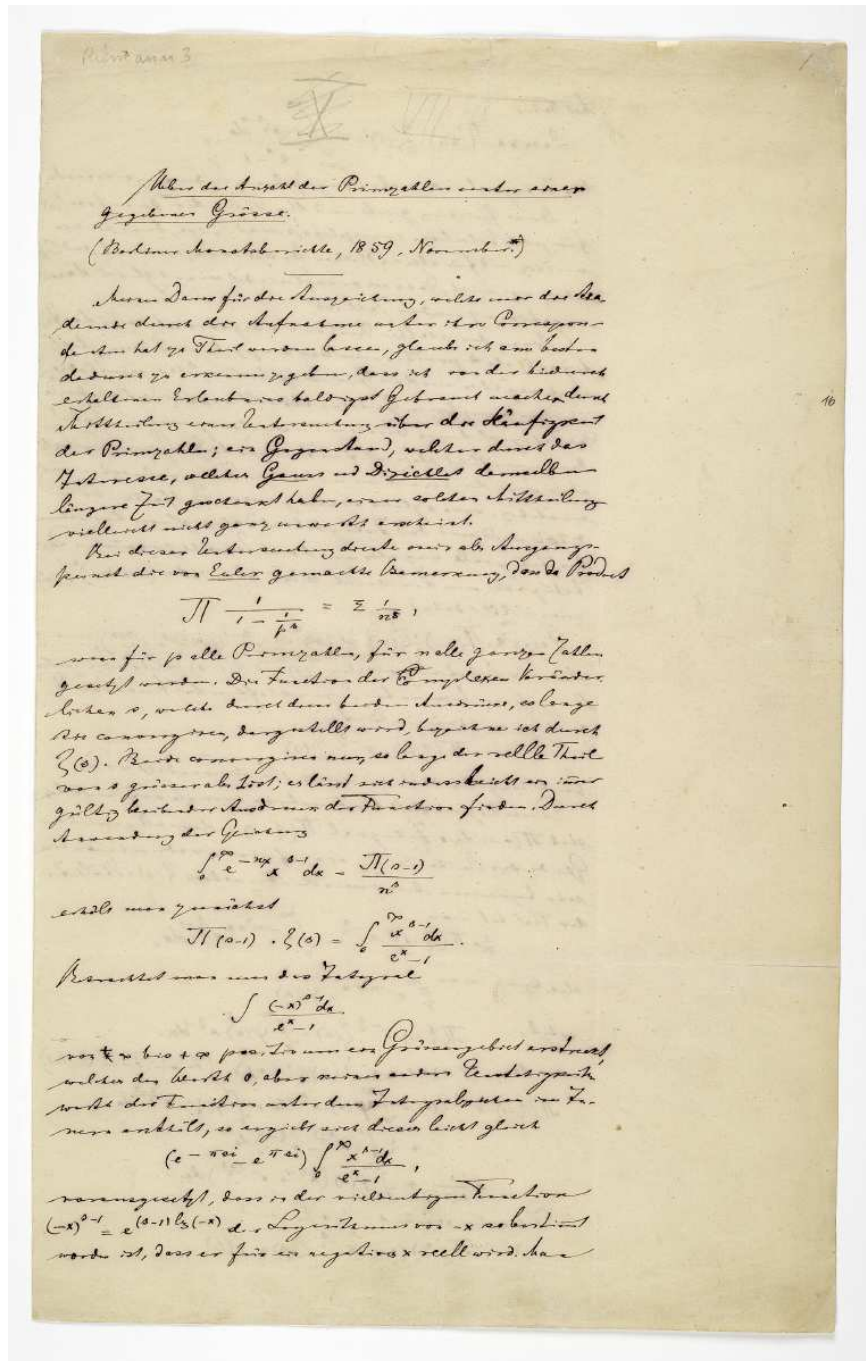 Riemann 3
Ueber die Anzahl der Primzahlen unter einer
gegebenen Grösse.
(Berliner Monatsberichte, 1859, November.*)
Meinen Dank für die Auszeichnung, welche mir die Aka-
demie durch die Aufnahme unter ihre Correspon-
denten hat zu Theil werden lassen, glaube ich am besten
dadurch zu erkennen zu geben, dass ich von der hiedurch
erhaltenen Erlaubniss baldigst Gebrauch mache durch
Mittheilung einer Untersuchung über die Häufigkeit
der Primzahlen; ein Gegenstand, welcher durch das
Interesse, welches Gauss und Dirichlet demselben
längere Zeit geschenkt haben, einer solchen Mittheilung
vielleicht nicht ganz unwerth erscheint.
Bei dieser Untersuchung diente mir als Ausgangs-
punct die von Euler gemachte Bemerkung, dass das Product
∏ 1/(1 − 1/p^s) = Σ 1/n^s ,
wenn für p alle Primzahlen, für n alle ganzen Zahlen
gesetzt werden. Die Function der complexen Veränder-
lichen s, welche durch diese beiden Ausdrücke, so lange
sie convergiren, dargestellt wird, bezeichne ich durch
ζ(s). Beide convergiren nur, so lange der reelle Theil
von s grösser als 1 ist; es lässt sich indess leicht ein immer
gültig bleibender Ausdruck der Function finden. Durch
Anwendung der Gleichung
∫₀^∞ e^{−nx} x^{s−1} dx = ∏(s−1)/n^s
erhält man zunächst
∏(s−1) . ζ(s) = ∫₀^∞ x^{s−1}dx/(e^x − 1) .
Betrachtet man nun das Integral
∫ (−x)^{s−1}dx/(e^x − 1)
von + ∞ bis + ∞ positiv um ein Grössengebiet erstreckt,
welches den Werth 0, aber keinen andern Unstetigkeits-
werth der Function unter dem Integralzeichen im In-
nern enthält, so ergiebt sich dieses leicht gleich
(e^{−πsi} − e^{πsi}) ∫₀^∞ x^{s−1}dx/(e^x − 1) ,
vorausgesetzt, dass in der vieldeutigen Function
(−x)^{s−1} = e^{(s−1) lg(−x)} der Logarithmus von −x so bestimmt
worden ist, dass er für ein negatives x reell wird. Man
16